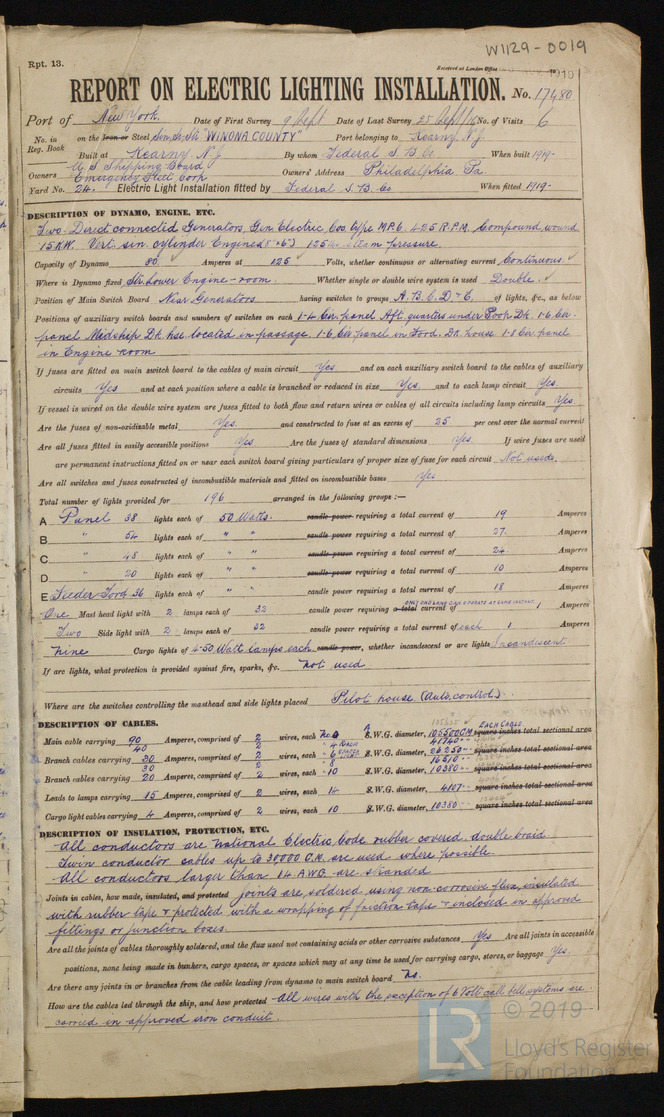 W1129-0019
Rpt. 13.
Received at London Office 1919
REPORT ON ELECTRIC LIGHTING INSTALLATION. No. 17480
Port of New York. Date of First Survey 9 Sept Date of Last Survey 25 Sept/19 No. of Visits 6
No. in Reg. Book on the Iron or Steel "WINONA COUNTY" Port belonging to Kearny N.J
Built at Kearny N.J By whom Federal S.B. Co When built 1919-
Owners U.S Shipping Board Emergency Fleet Corp Owners' Address Philadelphia Pa.
Yard No. 24. Electric Light Installation fitted by Federal S.B. Co When fitted 1919-
DESCRIPTION OF DYNAMO, ENGINE, ETC.
Two Direct connected Generators, Gen. Electric Coa type M.P.6. 425 R.P.M. Compound wound
15 KW. Vert. sin. cylinder Engines 125 steam pressure.
Capacity of Dynamo 80. Amperes at 125 Volts, whether continuous or alternating current Continuous.
Where is Dynamo fixed Str. Lower Engine-room. Whether single or double wire system is used Double.
Position of Main Switch Board Near Generators having switches to groups A. B. C. D & E. of lights, &c., as below
Positions of auxiliary switch boards and numbers of switches on each 1-4 Cir. panel Aft. quarters under Poop Dk. 1-6 Cir.
panel Midship Dk. hse located in passage. 1-6 Cir. panel in Ford. Dk. house 1-8 Cir. panel
in Engine room
If fuses are fitted on main switch board to the cables of main circuit Yes and on each auxiliary switch board to the cables of auxiliary
circuits Yes and at each position where a cable is branched or reduced in size Yes. and to each lamp circuit Yes.
If vessel is wired on the double wire system are fuses fitted to both flow and return wires or cables of all circuits including lamp circuits Yes
Are the fuses of non-oxidizable metal Yes. and constructed to fuse at an excess of 25 per cent over the normal current
Are all fuses fitted in easily accessible positions Yes. Are the fuses of standard dimensions Yes. If wire fuses are used
are permanent instructions fitted on or near each switch board giving particulars of proper size of fuse for each circuit Not used.
Are all switches and fuses constructed of incombustible materials and fitted on incombustible bases Yes
Total number of lights provided for 196 arranged in the following groups :—
A Panel 38 lights each of 50 Watts. candle power requiring a total current of 19 Amperes
B " 54 lights each of " " candle power requiring a total current of 27. Amperes
C " 48 lights each of " " candle power requiring a total current of 24. Amperes
D " 20 lights each of " " candle power requiring a total current of 10 Amperes
E Feeder Ford 36 lights each of " candle power requiring a total current of 18 Amperes
One Mast head light with 2 lamps each of 32 candle power requiring a total current of ONLY ONE LAMP CAN OPERATE AT SAME INSTANT 1 Amperes
Two Side light with 2 lamps each of 32 candle power requiring a total current of each 1 Amperes
Nine Cargo lights of 4-50 Watt lamps each candle power, whether incandescent or arc lights Incandescent
If arc lights, what protection is provided against fire, sparks, &c. Not used
Where are the switches controlling the masthead and side lights placed Pilot house (Auto. control).
DESCRIPTION OF CABLES. EACH CABLE.
Main cable carrying 90 Amperes, comprised of 2 wires, each No. 0 S.W.G. diameter, 105500 C.M. square inches total sectional area
40 2 " 4 41740
Branch cables carrying 30 Amperes, comprised of 2 wires, each " 6 S.W.G. diameter, 26250 square inches total sectional area
30 2 " 8 16510
Branch cables carrying 20 Amperes, comprised of 2 wires, each " 10 S.W.G. diameter, 10380 square inches total sectional area
Leads to lamps carrying 15 Amperes, comprised of 2 wires, each 14 S.W.G. diameter, 4107 square inches total sectional area
Cargo light cables carrying 4 Amperes, comprised of 2 wires, each 10 S.W.G. diameter, 10380 square inches total sectional area
DESCRIPTION OF INSULATION, PROTECTION, ETC.
All conductors are National Electric code rubber covered double braid.
Twin conductor cables up to 30000 C.M. are used where possible
All conductors larger than 14 A.W.G. are stranded
Joints in cables, how made, insulated, and protected Joints are, soldered using non corrosive flux, insulated
with rubber tape & protected with a wrapping of friction tape & enclosed in approved
fittings or junction boxes.
Are all the joints of cables thoroughly soldered, and the flux used not containing acids or other corrosive substances Yes Are all joints in accessible
positions, none being made in bunkers, cargo spaces, or spaces which may at any time be used for carrying cargo, stores, or baggage Yes.
Are there any joints in or branches from the cable leading from dynamo to main switch board No.
How are the cables led through the ship, and how protected All wires with the exception of 6 Volt call bell systems are
carried in approved iron conduit.
LR © 2019
Lloyd's Register
Foundation